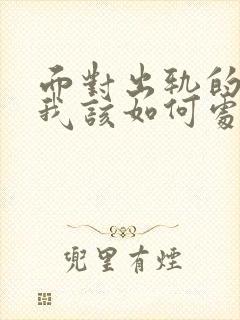 而對出軌的
我該如何處
兜里有煙